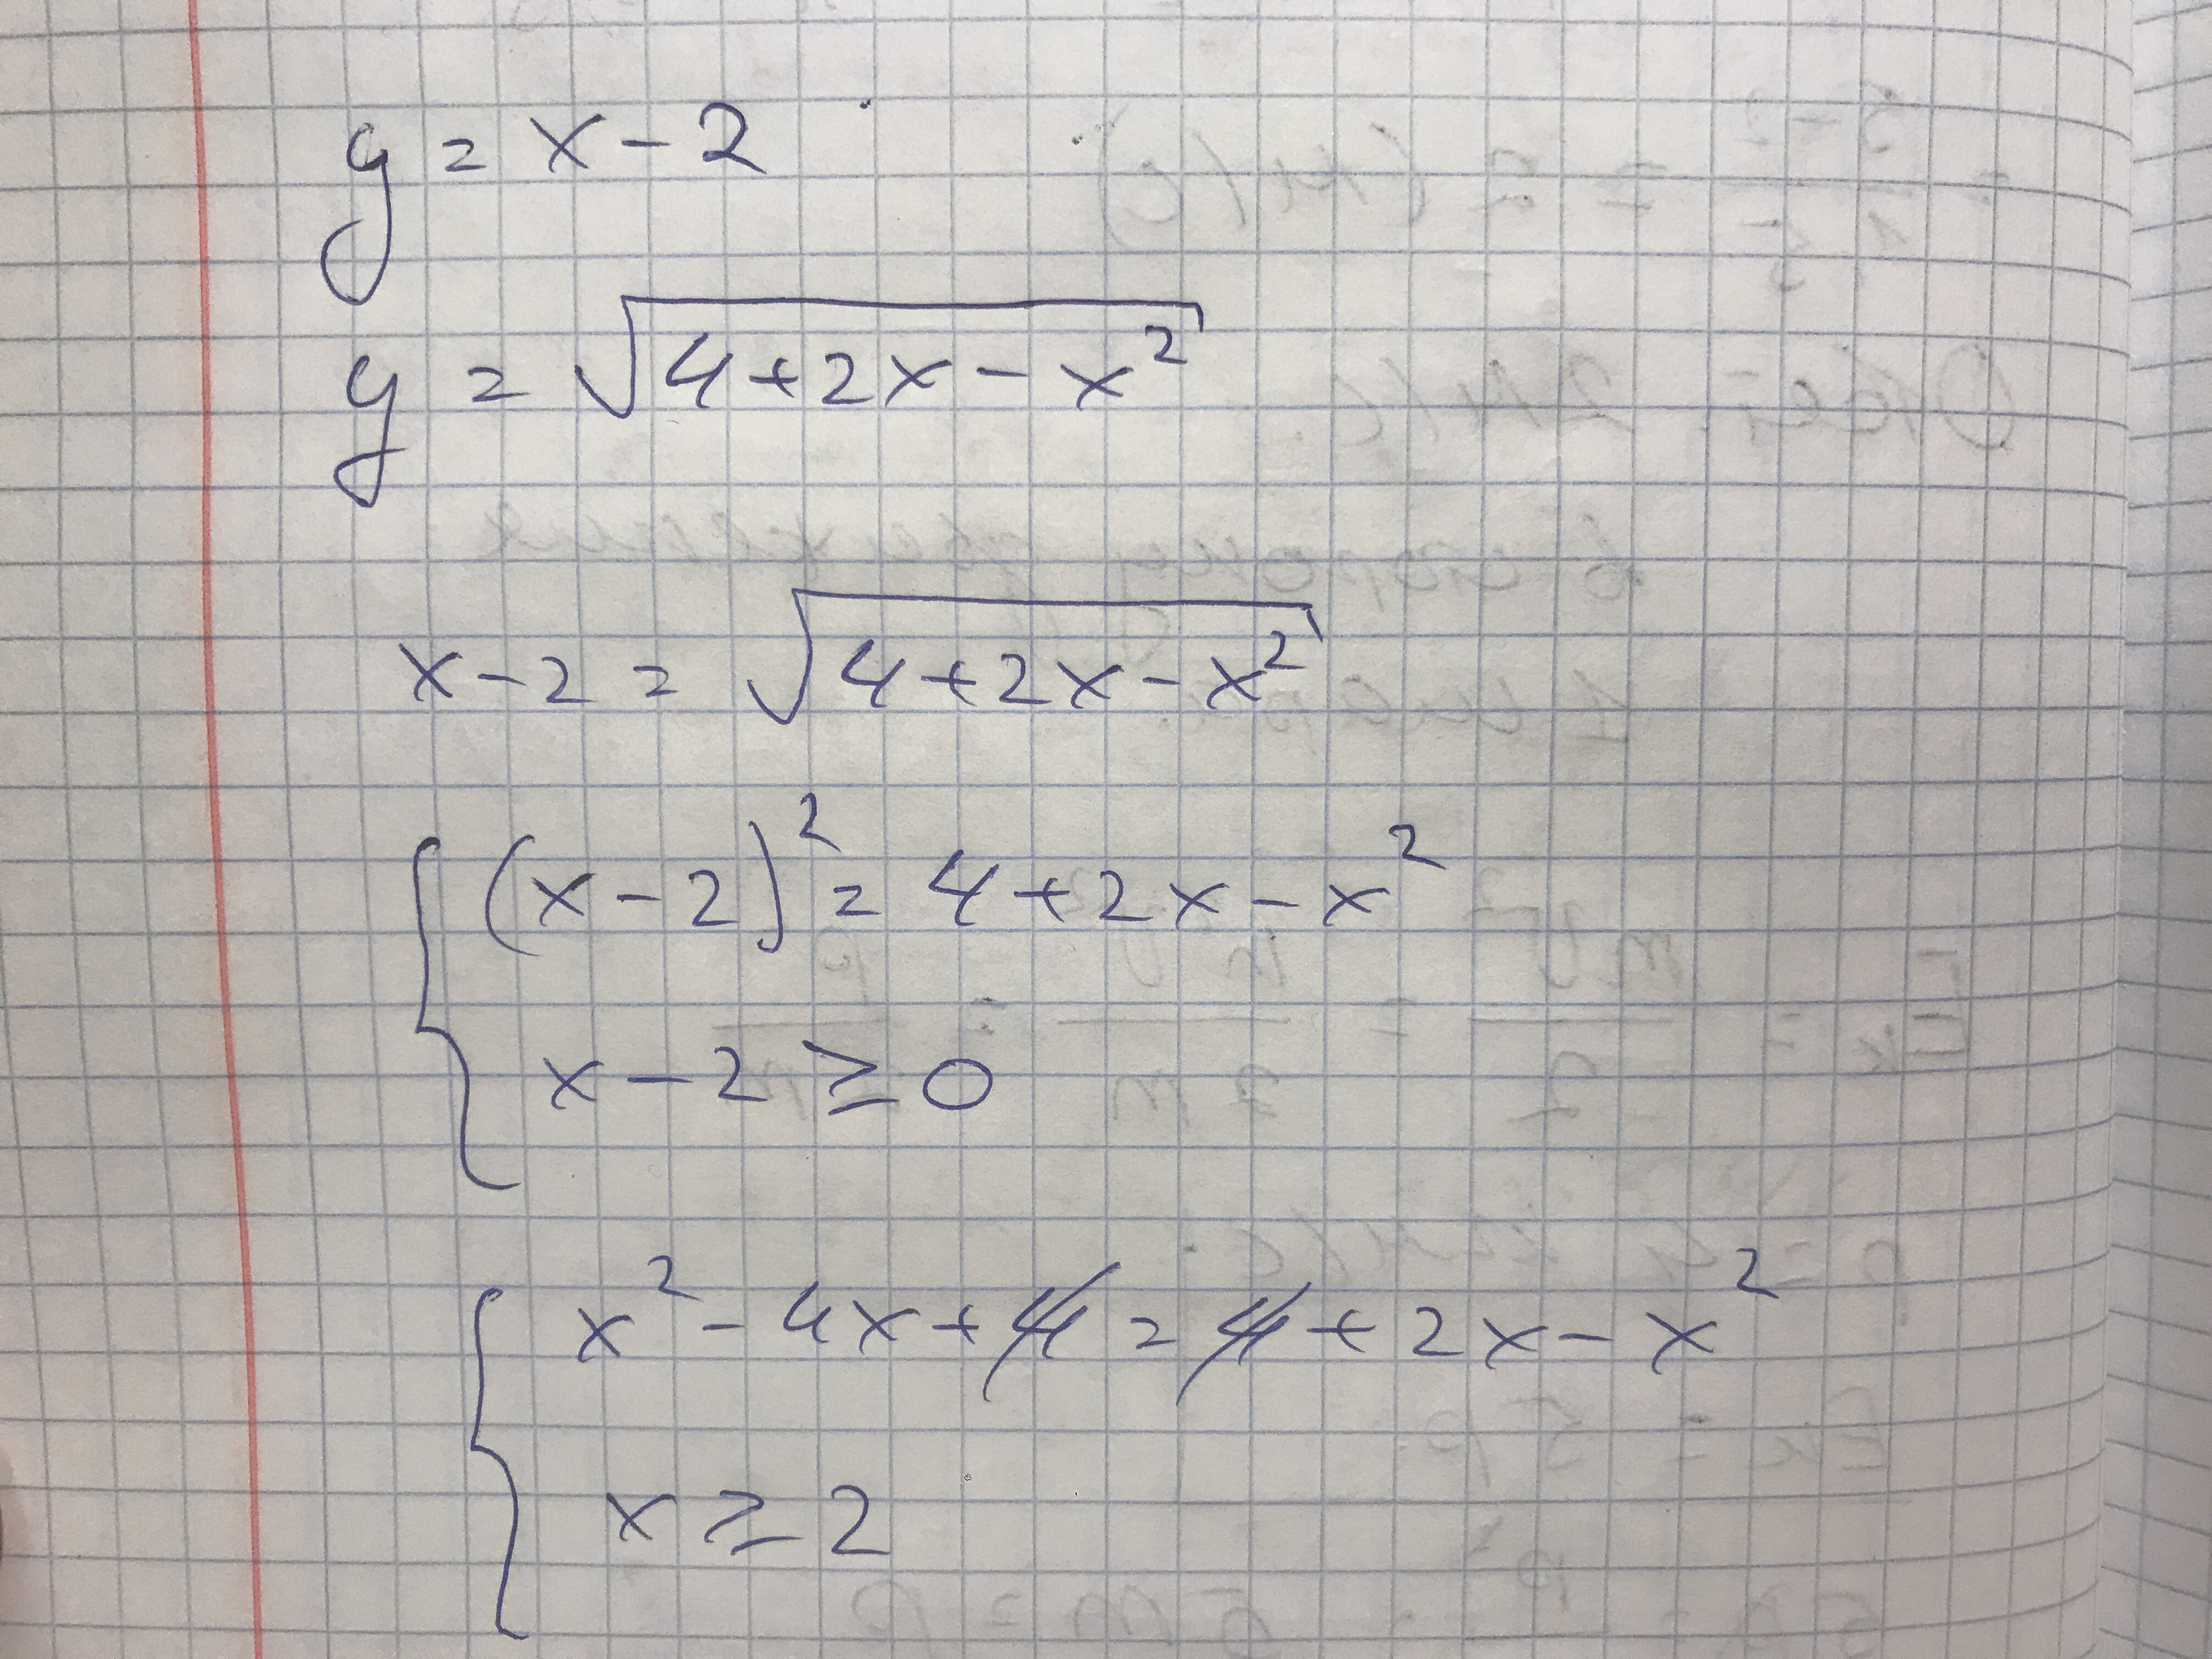 y = x - 2
y = √(4 + 2x - x²)
x - 2 = √(4 + 2x - x²)
(x - 2)² = 4 + 2x - x²
x - 2 ≥ 0
x² - 4x + 4 = 4 + 2x - x²
x ≥ 2